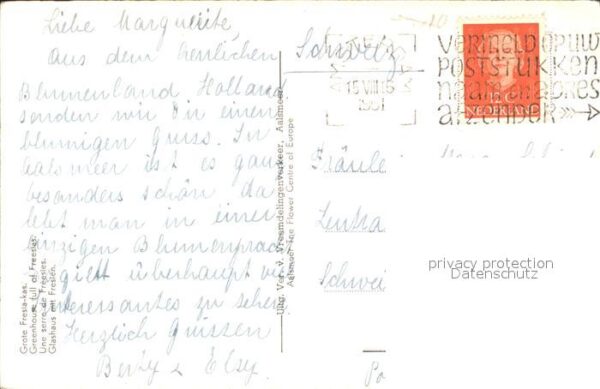 Liebe Marguerite
Aus dem herrlichen
Blumenland Holland
senden wir dir einen
blumigen Gruss. In
Aalsmeer ist es ganz
besonders schön da
lebt man in einer
einzigen Blumenpracht
giebt überhaupt viel
interessantes zu sehen
Herzlich grüssen
Betty & Elsy
Grote Fresia-kas.
Greenhouse full of Freesias.
Une serre de Freesies.
Glashaus mit Fresien.
Uitg. Ver. v. Vreemdelingenverkeer, Aalsmeer
Aalsmeer The Flower Centre of Europe
Schweiz
15 VIII 15
1951
VERMELD OP UW
POSTSTUKKEN
AFZENDER
NEDERLAND
Fräule
Lentra
Schwei
Po
privacy protection
Datenschutz